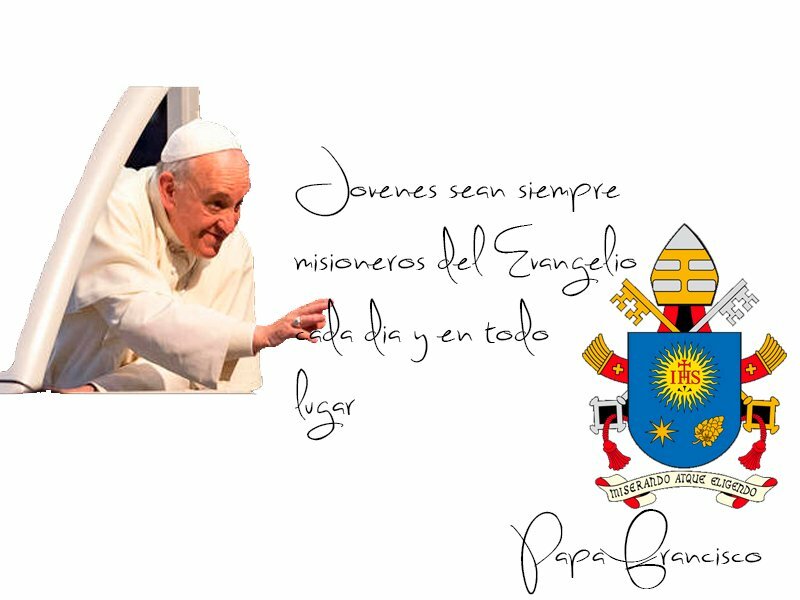 Jovenes sean siempre
misioneros del Evangelio
cada dia y en todo
lugar
IHS
MISERANDO ATQUE ELIGENDO
Papa Francisco